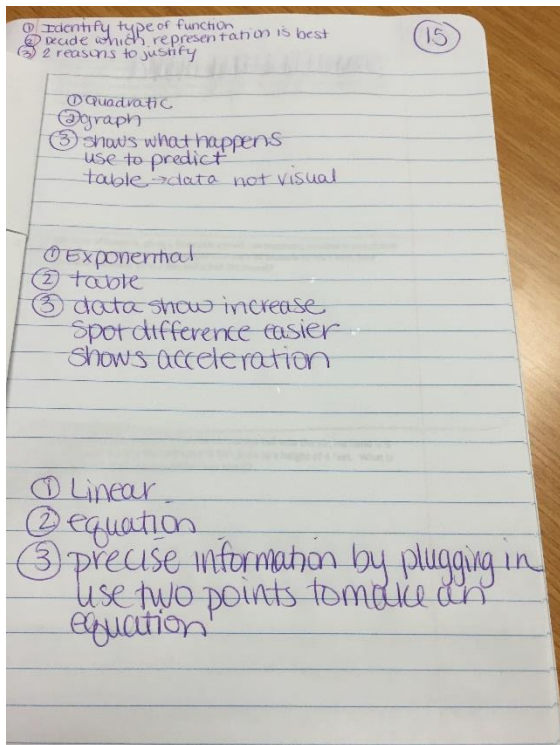 ① Identify type of function
② Decide which representation is best
③ 2 reasons to justify
15
① Quadratic
② graph
③ shows what happens
use to predict
table → data not visual
① Exponential
② table
③ data show increase
spot difference easier
shows acceleration
① Linear
② equation
③ precise information by plugging in
use two points to make an
equation